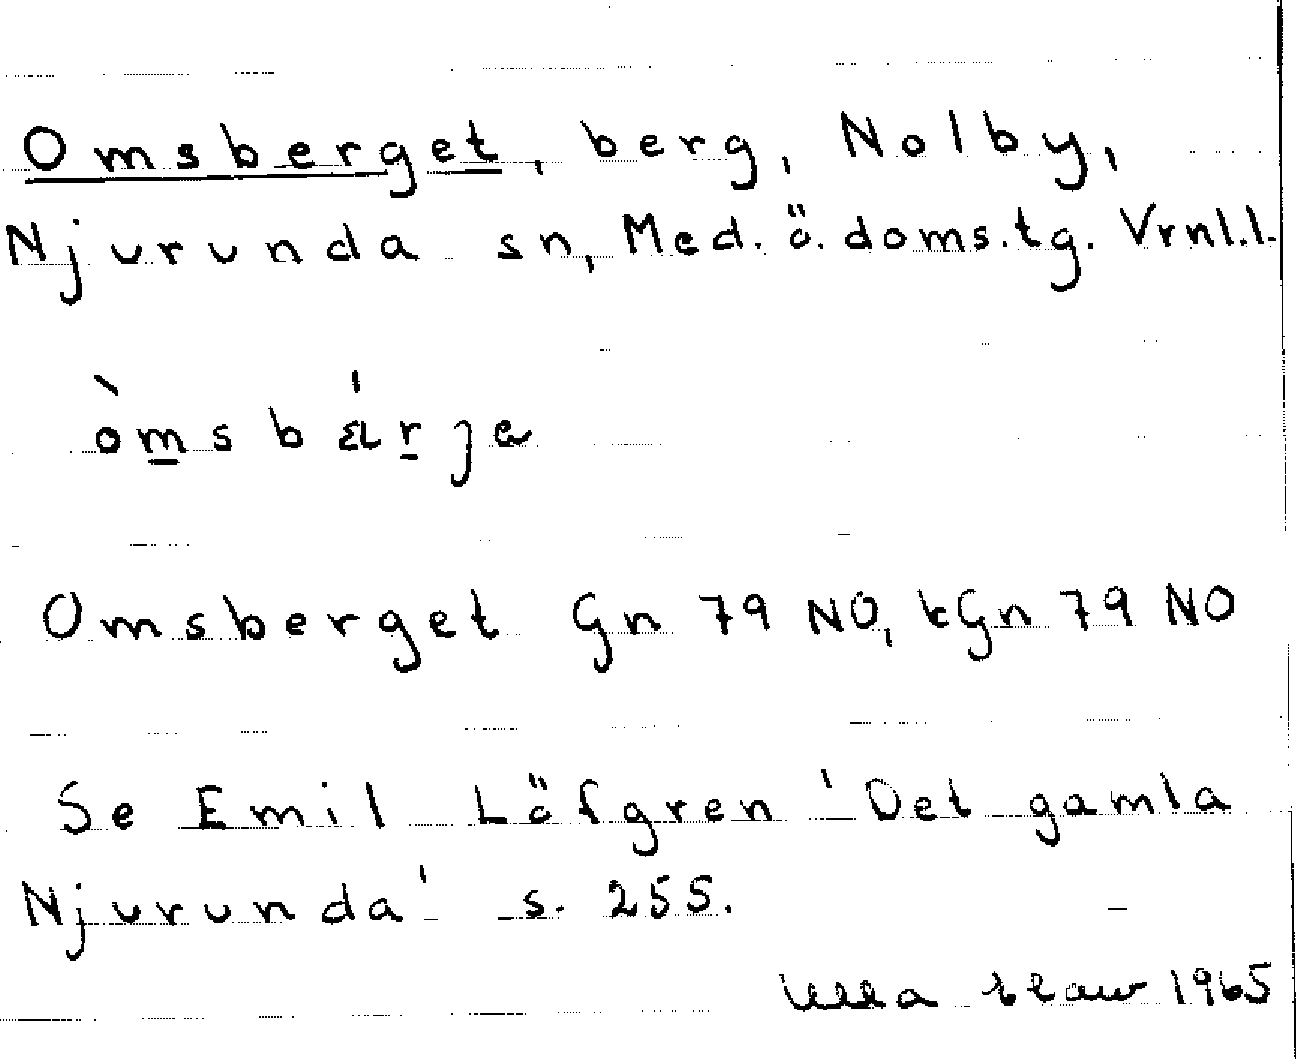 Omsberget, berg, Nolby,
Njurunda sn, Med. ö. doms.tg. Vrnl.l.
òmsbä́rje
Omsberget Gn 79 NO, kGn 79 NO
Se Emil Löfgren 'Det gamla
Njurunda' s. 255.
Ulla 1965